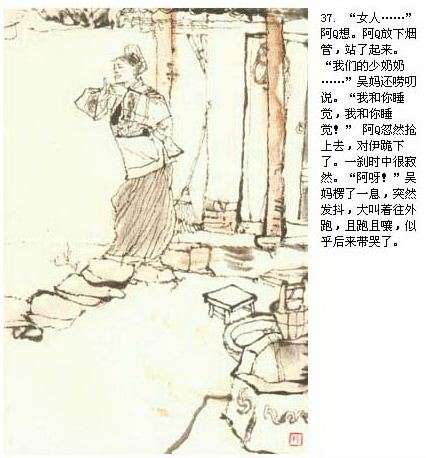 37. “女人……”
阿Q想。阿Q放下烟
管，站了起来。
“我们的少奶奶
……”吴妈还唠叨
说。“我和你睡
觉，我和你睡
觉！” 阿Q忽然抢
上去，对伊跪下
了。一刹时中很寂
然。“阿呀！”吴
妈楞了一息，突然
发抖，大叫着往外
跑，且跑且嚷，似
乎后来带哭了。